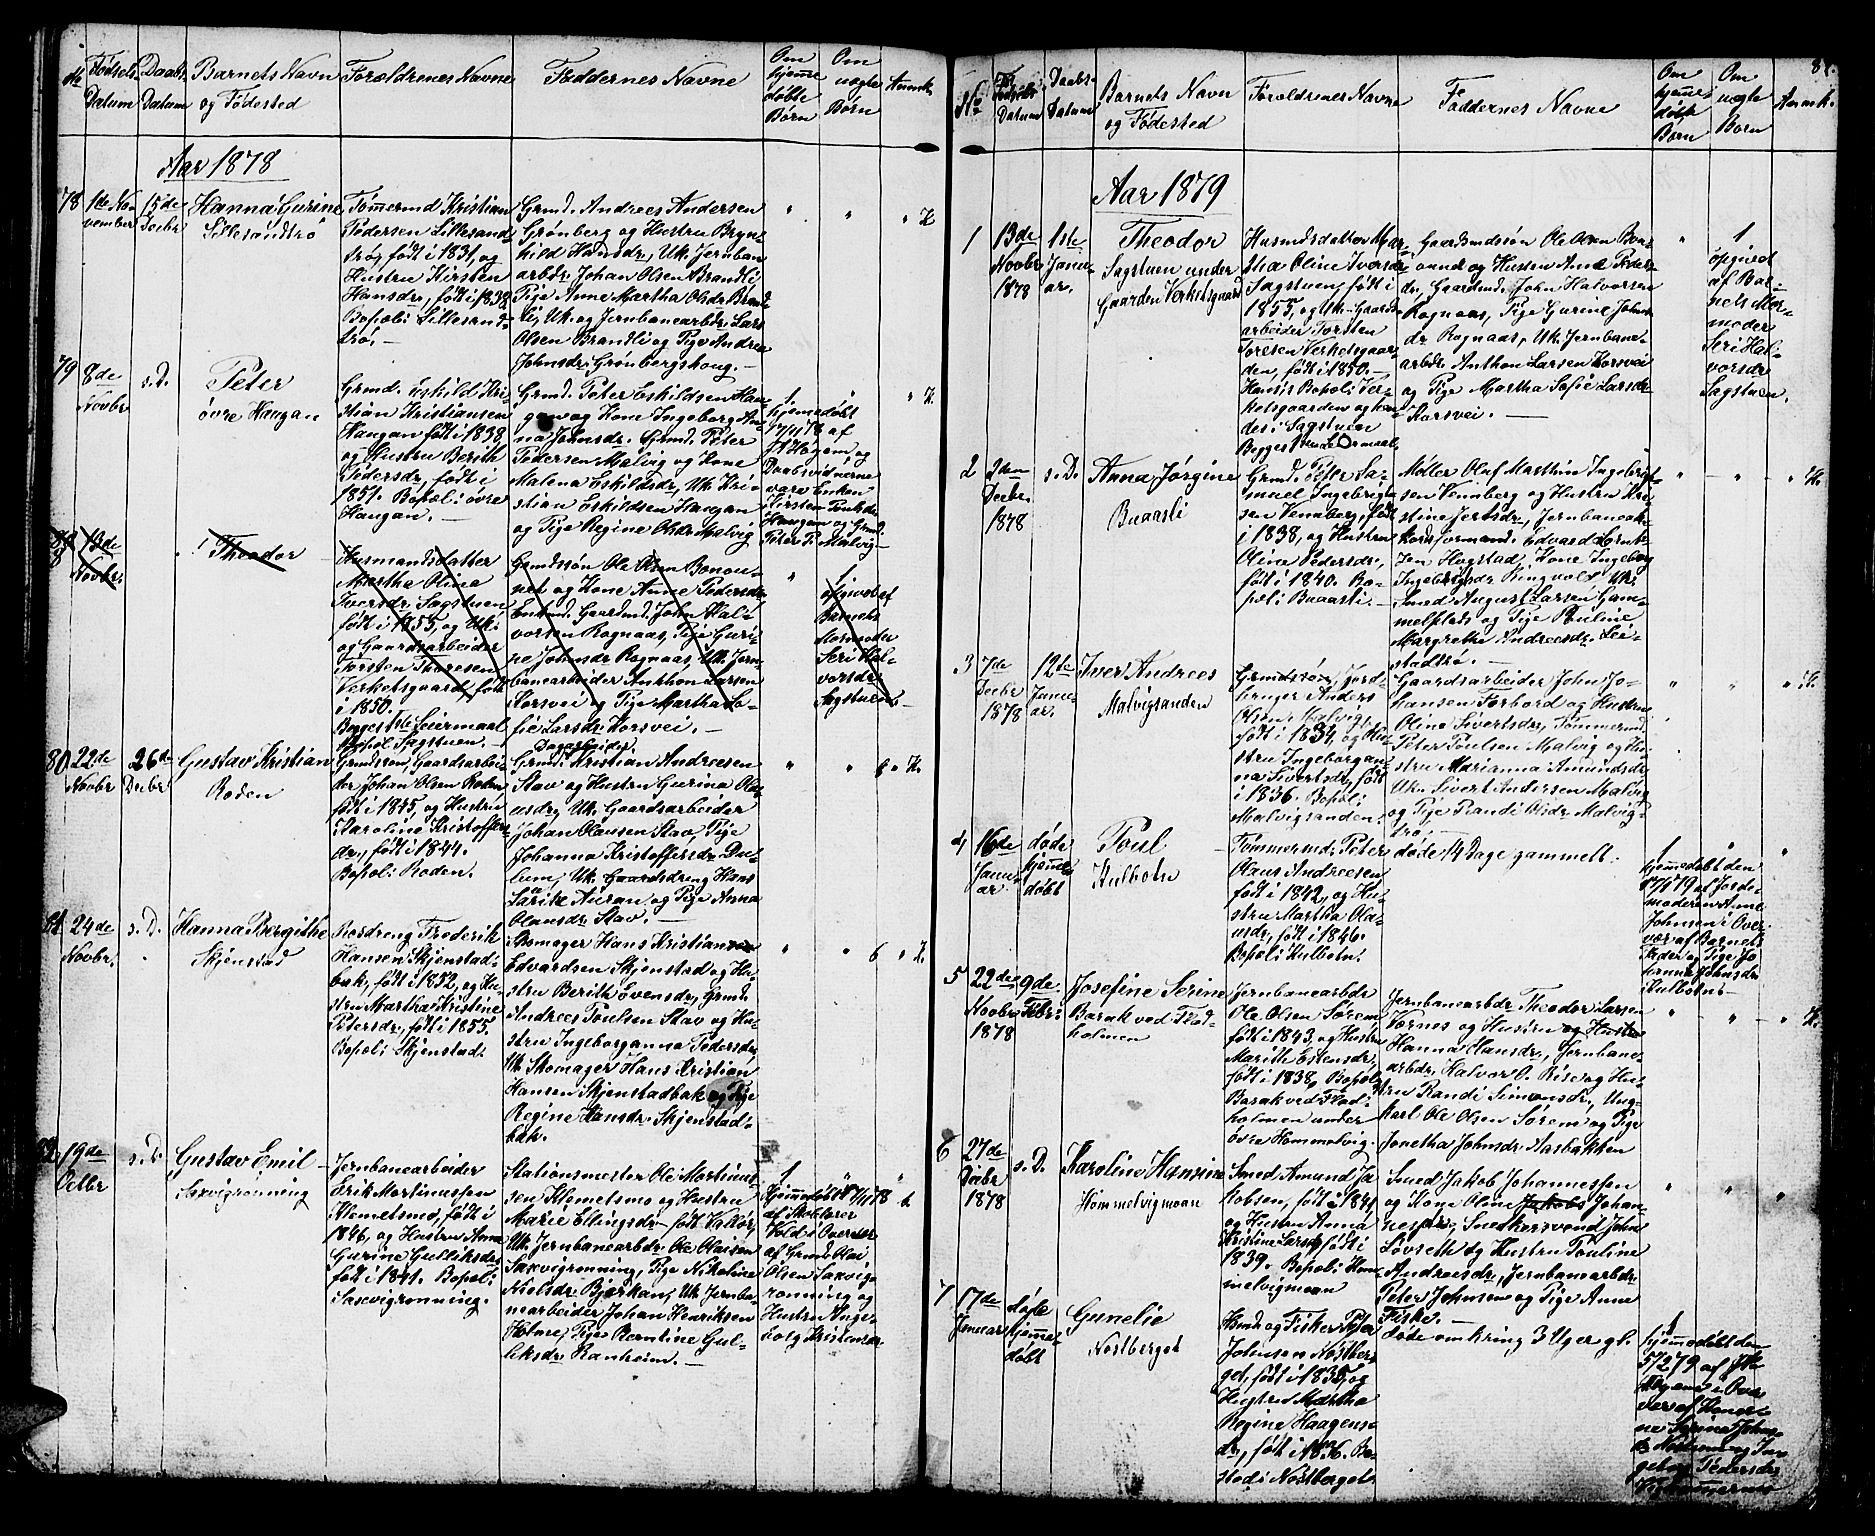 No
Fødsels
Datum
Daabs
Datum
Barnets Navn
og Fødested
Forældrenes Navne
Faddernes Navne
Om
hjemme
døbte
Børn
Om
uægte
Børn
Anmk.
Aar 1878
78
1de No-
vember
15de
Decbr
Hanna Gurine
Lillesandtrø
Tømermd Kristian
Pedersen Lillesand-
trø, født i 1831, og
Hustru Kirsten
Hansdr, født i 1838
Bopæl: Lillesand-
trø, —
Grmd. Andreas Andersen
Grønberg og Hustru Bryn-
hild Hansdr, Uk. Jernban
arbdr Johan Olsen Brandli
Pige Anne Martha Olsdr Brand
li, Uk. og Jernbanearbdr Lars
Olsen Brandli og Pige Andrea
Johnsdr Grønbergshaug. —
79
8de
Novbr
s. D.
Peter
øvre Haugan
Grmd. Eskild Kri-
stian Kristiansen
Haugan født i 1838
og Hustru Berith
Pedersdr, født i
1851. Bopæl: øvre
Haugan. —
Grmd. Peter Eskildsen Hau-
gan og Kone Ingeborg An-
na Johnsdr. Grmd. Peter
Pedersen Malvig og Kone
Malena Eskildsdr, Uk. Kri-
stian Eskildsen Haugan
og Pige Regine Olsdr Malvig
1.
hjemedøbt
af
og
Daabsvidnerne
vare Enken
Haugan og Grmd.
Peter P. Malvig —
13de
Novbr.
Theodor
Husmandsdatter
Martha Olina
Iversdr Sagstuen
født i 1855, og Uk.
og Gaardsarbeider
Torsten Thoresen
Verketsgaard, født
i 1850.
Begges 1ste Leiermaal
Bopæl Sagstuen. —
Grmdssøn Ole Olsen Bonou-
net og Kone Anne Pedersdr
Enkmd. Gaardmd. John Hal-
vorsen Rognaas, Pige Guri-
ne Johnsdr Rognaas, Uk. Jern-
banearbeider Anthon Larsen
Korsvei og Pige Martha So-
fie Larsdr Korsvei. —
1
opgivet af
Barnets
Mormoder
Seri Hal-
vorsdr
Sagstuen
80
22de
Novbr
26de
Decbr
Gustav Kristian
Roden
Grmdssøn, Gaardsarbei-
der Johan Olsen Roden
født i 1845, og Hustru
Karoline Kristoffers-
dr, født i 1844.
Bopæl: Roden.
Dagarbeider
Grmd. Kristian Andreesen
Stav og Hustru Gurina Ola-
usdr, Uk. Gaardsarbeider
Johan Olausen Stav, Pige
Johanna Kristoffersdr Du-
lum, Uk. Gaardsdreng Hans
Auran og Pige Anna
Olausdr Stav. —
81
24de
Novbr.
s. D.
Hanna Bergithe
Skjenstad
Rosdreng Frederik
Hansen Skjenstad-
bak, født i 1852, og Hu-
stru Martha Kristine
Petersdr, født i 1855.
Bopæl: Skjenstad.
Skomager Hans Kristian
Edvardsen Skjenstad og Hu-
stru Berith Evensdr, Grmd.
Andrees Poulsen Stav og Hu-
stru Ingeborganna Pedersdr,
Uk. Skomager Hans Kristian
Hansen Skjenstadbak og Pige
Regine Hansdr Skjenstad-
bak.
6
82
19de
Octbr
s. D.
Gustav Emil
Saxvigrønning
Jernbanearbeider
Erik Martinussen
Klemetsmo, født i
1846, og Hustru Anna
Gurine Gulliksdr
født i 1841. Bopæl:
Saxvigrønning.
Stationsmester Ole Martinus-
sen Klemetsmo og Hustru
Marie Ellingsdr født Valler,
Uk. Jernbanearbdr Ole Olaisen
Saxvigrønning, Pige Nikoline
Nielsdr Bjørkan, Uk. Jernba-
nearbeider Johan Henriksen
Holme, Pige Berntine Gul-
liksdr Ranheim. —
1
hjemmedøbt 17/11 78
af Skolelærer
Hold i Overvær
af Grmd. Olai
Olsen Saxvig-
rønning og
Hustru Inge-
borg Kristensdr
No
Fødsels
Datum
Daabs-
Datum
Barnets Navn
og Fødested
Forældrenes Navne
Faddernes Navne
Om
hjeme-
døbt
Børn
Om
uægte
Børn
Anmk.
Aar 1879
1
13de
Novbr
1878
1ste
Janu-
ar.
Theodor
Sagstuen under
Gaarden Verketsgaard
Husmdsdatter Mar-
tha Oline Iversdr
Sagstuen, født i
1855, og Uk. Gaards-
arbeider Torsten
Toresen Verketsgaar-
den, født i 1850. —
Hans's Bopæl: Ver-
ketsgaarden og hen-
des: Sagstuen
Begges 1ste Leiermaal
Gaardmdssøn Ole Olsen Bon-
ound og Hustru Ane Peders-
dr, Gaardmd. John Halvorsen
Rognaas, Pige Gurine Johns-
dr Rognaas, Uk. Jernbane-
arbdr Anthon Larsen Korsvei
og Pige Martha Sofie Larsdr
Korsvei. —
1
opgivet
af Bar-
nets Mor-
moder
Seri Hal-
vorsdr
Sagstuen.
2
2den
Decbr.
1878
s. D.
Anna Jørgine
Buaasli
Grmd. Peter Sa-
muel Ingebrigt-
sen Venneberg, født
i 1838, og Hustru
Oline Pedersdr,
født i 1840. Bo-
pæl: Buaasli. —
Møller Oluf Marthin Ingebrigt-
sen Vennberg og Hustru Kri-
stine Jertsdr, Jernbaneak-
kordformand. Edvard Lorent-
zen Hogstad, Kone Ingeborg
Ingebrigtsdr Ringvold, Uk.
Smed August Larsen Gam-
melplads og Pige Pauline
Margrethe Andreesdr Lei-
stadtrø. —
3
7de
Decbr
1878
12te
Janu-
ar.
Iver Andrees
Malvigsanden
Grmdssøn, Jord-
bruger Anders
Olsen Malvig,
født i 1834, og Hu-
stru Ingeborgan-
na Sivertsdr, født
i 1836. Bopæl:
Malvigsanden.
Gaardsarbeider John Jo-
hansen Forbord og Hustru
Oline Sivertsdr, Tømmermd.
Peter Poulsen Malvig og Hu-
stru Marianna Amundsdr
Uk. Sivert Andersen Malvig
og Pige Randi Olsdr Malvig-
trø. —
4
16de
Janu-
ar
døde
hjemme-
døbt
Poul
Hulbotn
Tømmermd. Peter
Olaus Andreesen
født i 1842, og Hu-
stru Martha Ola-
usdr, født i 1846.
Bopæl: Hulbotn.
døde 14 Dage gammelt.
1
hjemmedøbt den
17/1 79 af Jorde-
moderen Anne
Johnsen i Over-
vær af Barnets
Fader og Pige Jo-
hanna Johnsdr
Hulbotn. —
5
22de
Novbr
1878
9de
Febr.
Josefine Serine
Barak ved Flad-
holmen
Jernbanearbdr
Ole Olsen Sørem
født i 1843, og Hustru
Marith Estensdr,
født i 1838, Bopæl:
Barak ved Flad-
holmen under
øvre Hommelvig.
Jernbanearbdr Theodor Larsen
Vernes og Hustru og Hustru
Hanna Hansdr, Jernbane-
arbdr Halvor O. Rise og Hu-
stru Randi Simonsdr, Ung-
karl Ole Olsen Sørem og Pige
Jonetha Johnsdr Aasbakken
6
27de
Decbr
1878
s. D.
Karoline Hansine
Hommelvigmoan
Smed Amund Ja-
kobsen, født i 1841
og Hustru Anna
Kristine Larsdr, født i
1839. Bopæl: Hom-
melvigmoan
Smed Jakob Johannessen
og Kone Oline Jakobs Johan-
nesdr, Snedkersvend John
Løvseth og Hustru Pouline
Andreesdr, Jernbanearbdr
Peter Johnsen og Pige Anne
Fiske. —
7
17de
Januar
døde
hjemme-
døbt
Gunelie
Nøstberget
Hsmd. og Fisker Peter
Johnsen Nøstber-
get, født i 1835, og
Hustru Martha
Regine Haagens-
dr, født i 1836. Bo-
sted: Nøstberget
døde omkring 3 Uger gl.
1
hjemmedøbt den
5/2 79 af
i Over-
vær af
ne Serine Johns-
dr Nøstberget og In-
geborg Pedersdr